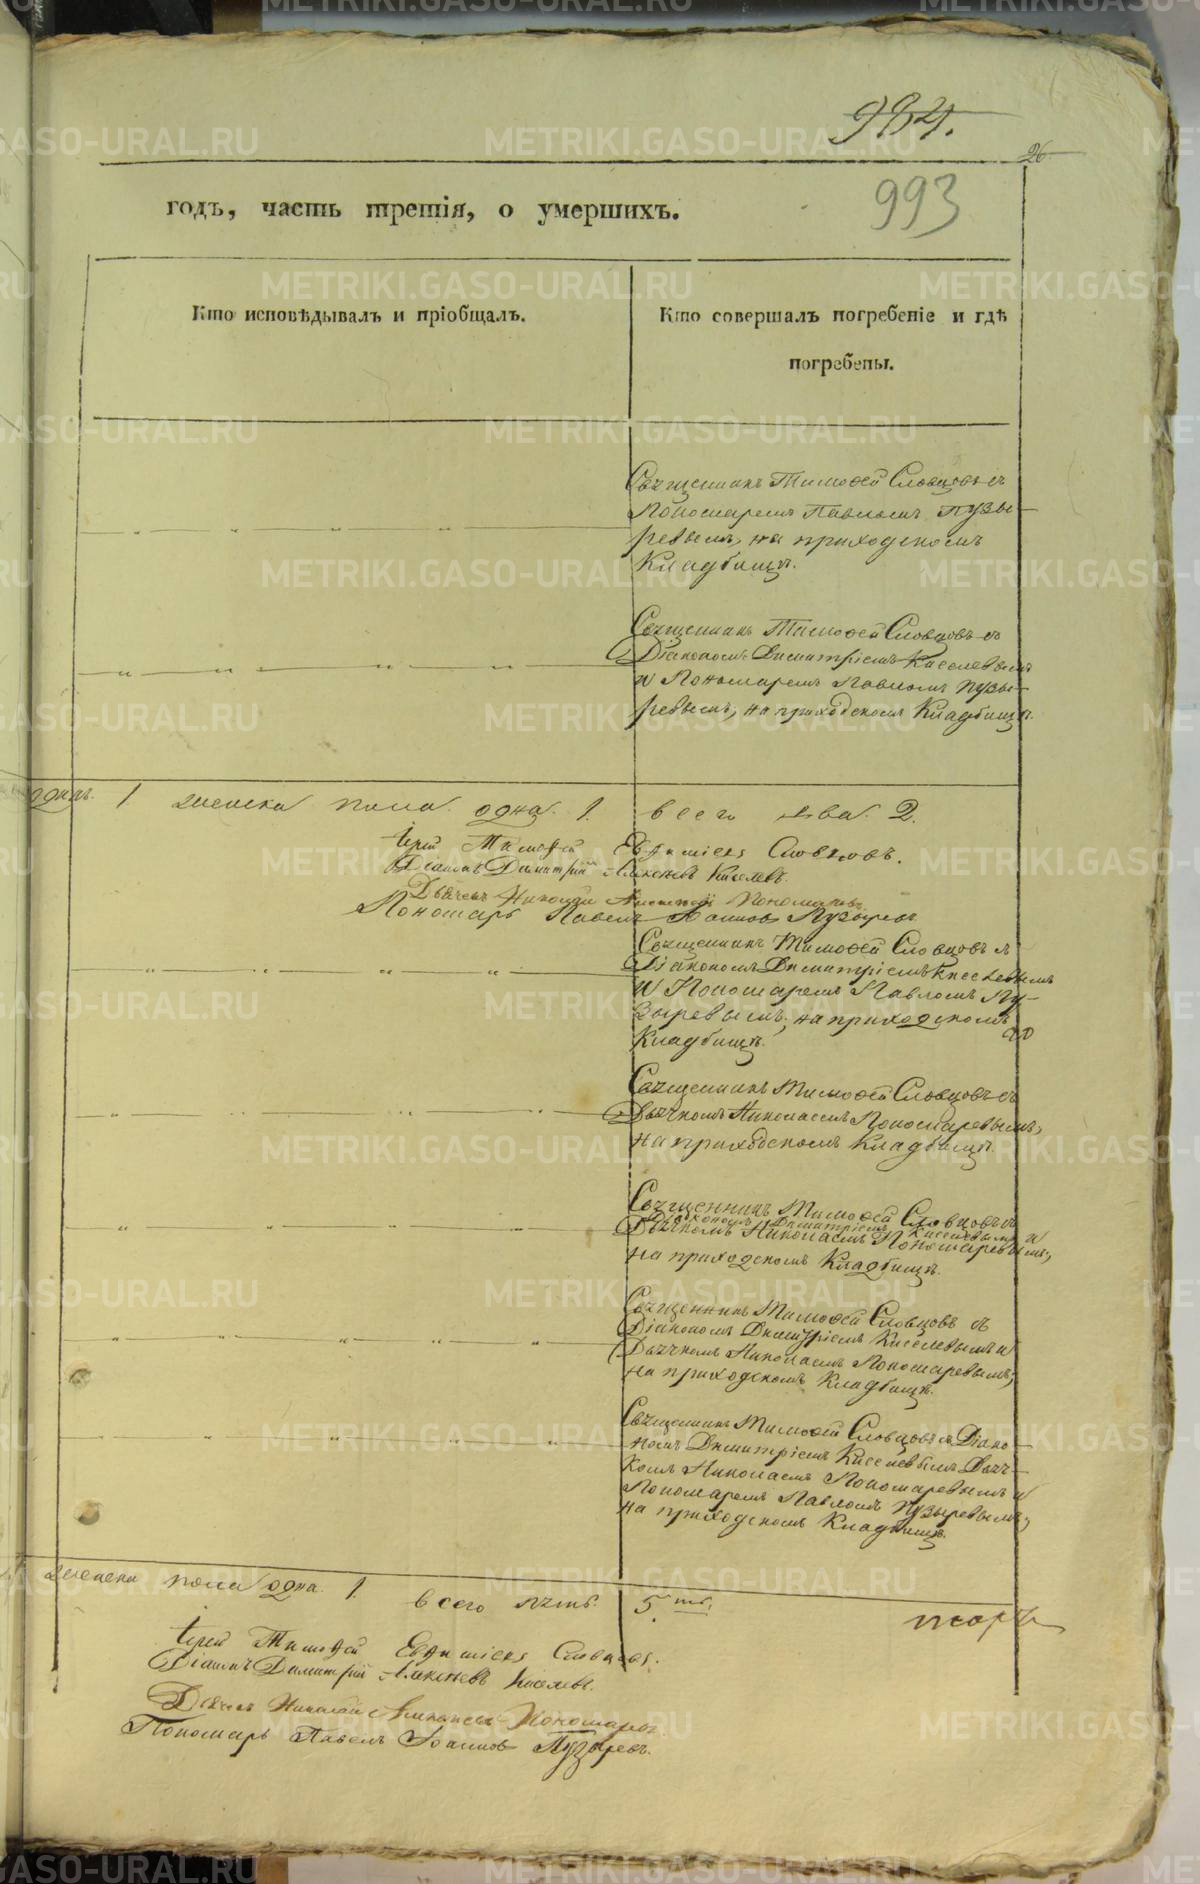 984.
26
993
годъ, часть третія, о умершихъ.
Кто исповѣдывалъ и пріобщалъ.
Кто совершалъ погребеніе и гдѣ
погребены.
Священникъ Тимоѳей Словцовъ съ
Пономаремъ Павломъ Пузы-
ревымъ, на приходскомъ
Кладбищѣ.
Священникъ Тимоѳей Словцовъ съ
Діакономъ Димитріемъ Киселевымъ
и Пономаремъ Павломъ Пузы-
ревымъ, на приходскомъ Кладбищѣ.
одинъ. 1 женска пола одна 1. всего два 2.
Іерей Тимоѳей Евѳиміевъ Словцовъ.
Діаконъ Димитрій Алексѣевъ Киселевъ.
Дьячекъ Николай Пономаревъ
Пономарь Павелъ Іоанновъ Пузыревъ
Священникъ Тимоѳей Словцовъ съ
Діакономъ Димитріемъ Киселевымъ
и Пономаремъ Павломъ Пу-
зыревымъ, на приходскомъ
Кладбищѣ.
Священникъ Тимоѳей Словцовъ съ
Дьячкомъ Николаемъ Пономаревымъ,
на приходскомъ Кладбищѣ.
Священникъ Тимоѳей Словцовъ съ
Діакономъ Димитріемъ Киселевымъ и
Дьячкомъ Николаемъ Пономаревымъ,
на приходскомъ Кладбищѣ.
Священникъ Тимоѳей Словцовъ съ
Діакономъ Димитріемъ Киселевымъ и
Дьячкомъ Николаемъ Пономаревымъ,
на приходскомъ Кладбищѣ.
Священникъ Тимоѳей Словцовъ съ Діако-
номъ Димитріемъ Киселевымъ Дьяч-
комъ Николаемъ Пономаревымъ и
Пономаремъ Павломъ Пузыревымъ,
на приходскомъ Кладбищѣ.
женска пола одна 1. всего пять 5.
Іерей Тимоѳей Евѳиміевъ Словцовъ.
Діаконъ Димитрій Алексѣевъ Киселевъ.
Дьячекъ Николай Пономаревъ
Пономарь Павелъ Іоанновъ Пузыревъ.
METRIKI.GASO-URAL.RU